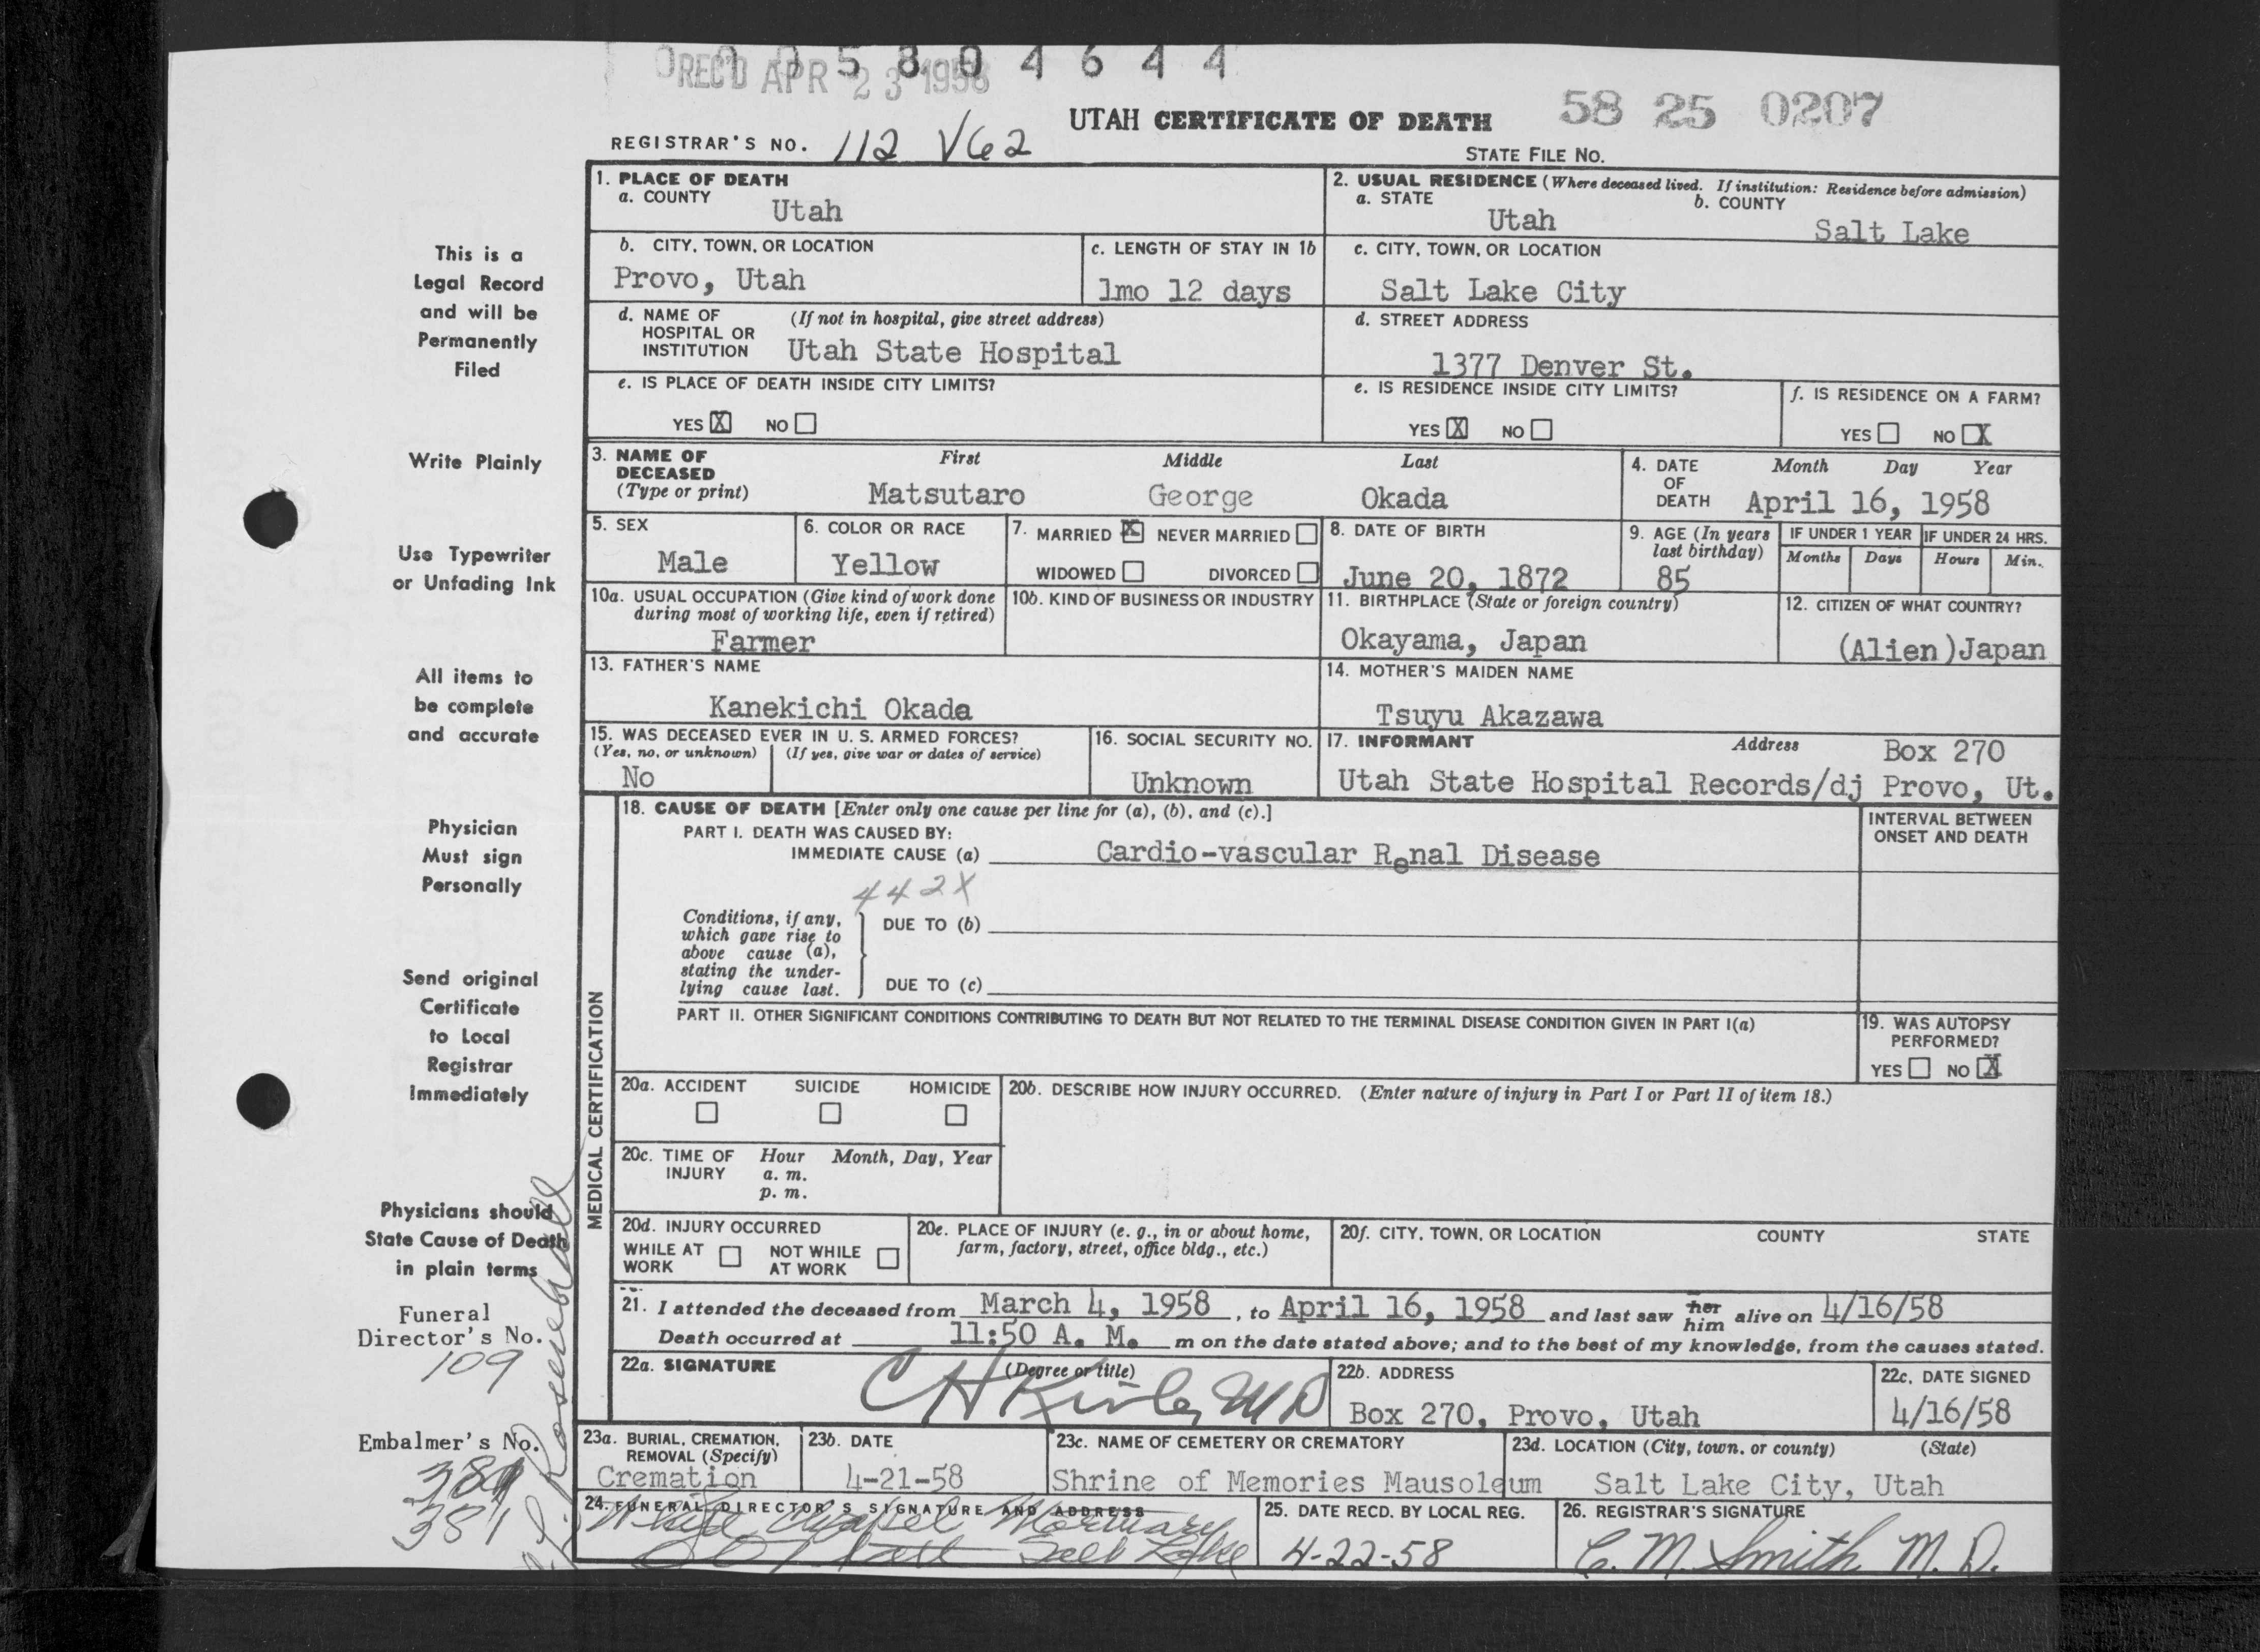 REC'D APR 23 1958
5 8 0 4 6 4 4
UTAH CERTIFICATE OF DEATH
58 25 0207
REGISTRAR'S NO. 112 V62
STATE FILE NO.
1. PLACE OF DEATH
a. COUNTY
Utah
2. USUAL RESIDENCE (Where deceased lived. If institution: Residence before admission)
a. STATE
Utah
b. COUNTY
Salt Lake
b. CITY, TOWN, OR LOCATION
Provo, Utah
c. LENGTH OF STAY IN 1b
1mo 12 days
c. CITY, TOWN, OR LOCATION
Salt Lake City
d. NAME OF HOSPITAL OR INSTITUTION
(If not in hospital, give street address)
Utah State Hospital
d. STREET ADDRESS
1377 Denver St.
e. IS PLACE OF DEATH INSIDE CITY LIMITS?
YES X NO
e. IS RESIDENCE INSIDE CITY LIMITS?
YES X NO
f. IS RESIDENCE ON A FARM?
YES NO X
3. NAME OF DECEASED
(Type or print)
First Middle Last
Matsutaro George Okada
4. DATE OF DEATH
Month Day Year
April 16, 1958
5. SEX
Male
6. COLOR OR RACE
Yellow
7. MARRIED X NEVER MARRIED
WIDOWED DIVORCED
8. DATE OF BIRTH
June 20, 1872
9. AGE (In years last birthday)
85
IF UNDER 1 YEAR
Months Days
IF UNDER 24 HRS.
Hours Min.
10a. USUAL OCCUPATION (Give kind of work done
during most of working life, even if retired)
Farmer
10b. KIND OF BUSINESS OR INDUSTRY
11. BIRTHPLACE (State or foreign country)
Okayama, Japan
12. CITIZEN OF WHAT COUNTRY?
(Alien)Japan
13. FATHER'S NAME
Kanekichi Okada
14. MOTHER'S MAIDEN NAME
Tsuyu Akazawa
15. WAS DECEASED EVER IN U. S. ARMED FORCES?
(Yes, no, or unknown) (If yes, give war or dates of service)
No
16. SOCIAL SECURITY NO.
Unknown
17. INFORMANT Address
Box 270
Utah State Hospital Records/dj Provo, Ut.
18. CAUSE OF DEATH [Enter only one cause per line for (a), (b), and (c).]
PART I. DEATH WAS CAUSED BY:
IMMEDIATE CAUSE (a) Cardio-vascular Renal Disease
INTERVAL BETWEEN
ONSET AND DEATH
442X
Conditions, if any,
which gave rise to
above cause (a),
stating the under-
lying cause last.
DUE TO (b)
DUE TO (c)
PART II. OTHER SIGNIFICANT CONDITIONS CONTRIBUTING TO DEATH BUT NOT RELATED TO THE TERMINAL DISEASE CONDITION GIVEN IN PART I(a)
19. WAS AUTOPSY
PERFORMED?
YES NO X
MEDICAL CERTIFICATION
20a. ACCIDENT SUICIDE HOMICIDE
20b. DESCRIBE HOW INJURY OCCURRED. (Enter nature of injury in Part I or Part II of item 18.)
20c. TIME OF INJURY
Hour Month, Day, Year
a. m.
p. m.
20d. INJURY OCCURRED
WHILE AT WORK NOT WHILE AT WORK
20e. PLACE OF INJURY (e. g., in or about home,
farm, factory, street, office bldg., etc.)
20f. CITY, TOWN, OR LOCATION COUNTY STATE
21. I attended the deceased from March 4, 1958, to April 16, 1958 and last saw her him alive on 4/16/58
Death occurred at 11:50 A. M. m on the date stated above; and to the best of my knowledge, from the causes stated.
22a. SIGNATURE (Degree or title)
C H M D
22b. ADDRESS
Box 270, Provo, Utah
22c. DATE SIGNED
4/16/58
23a. BURIAL, CREMATION,
REMOVAL (Specify)
Cremation
23b. DATE
4-21-58
23c. NAME OF CEMETERY OR CREMATORY
Shrine of Memories Mausoleum
23d. LOCATION (City, town, or county) (State)
Salt Lake City, Utah
24. FUNERAL DIRECTOR'S SIGNATURE AND ADDRESS
White Chapel Mortuary
Salt Lake
25. DATE RECD. BY LOCAL REG.
4-22-58
26. REGISTRAR'S SIGNATURE
C. M. Smith M. D.
This is a
Legal Record
and will be
Permanently
Filed
Write Plainly
Use Typewriter
or Unfading Ink
All items to
be complete
and accurate
Physician
Must sign
Personally
Send original
Certificate
to Local
Registrar
Immediately
Physicians should
State Cause of Death
in plain terms
Funeral
Director's No.
109
Embalmer's No.
381